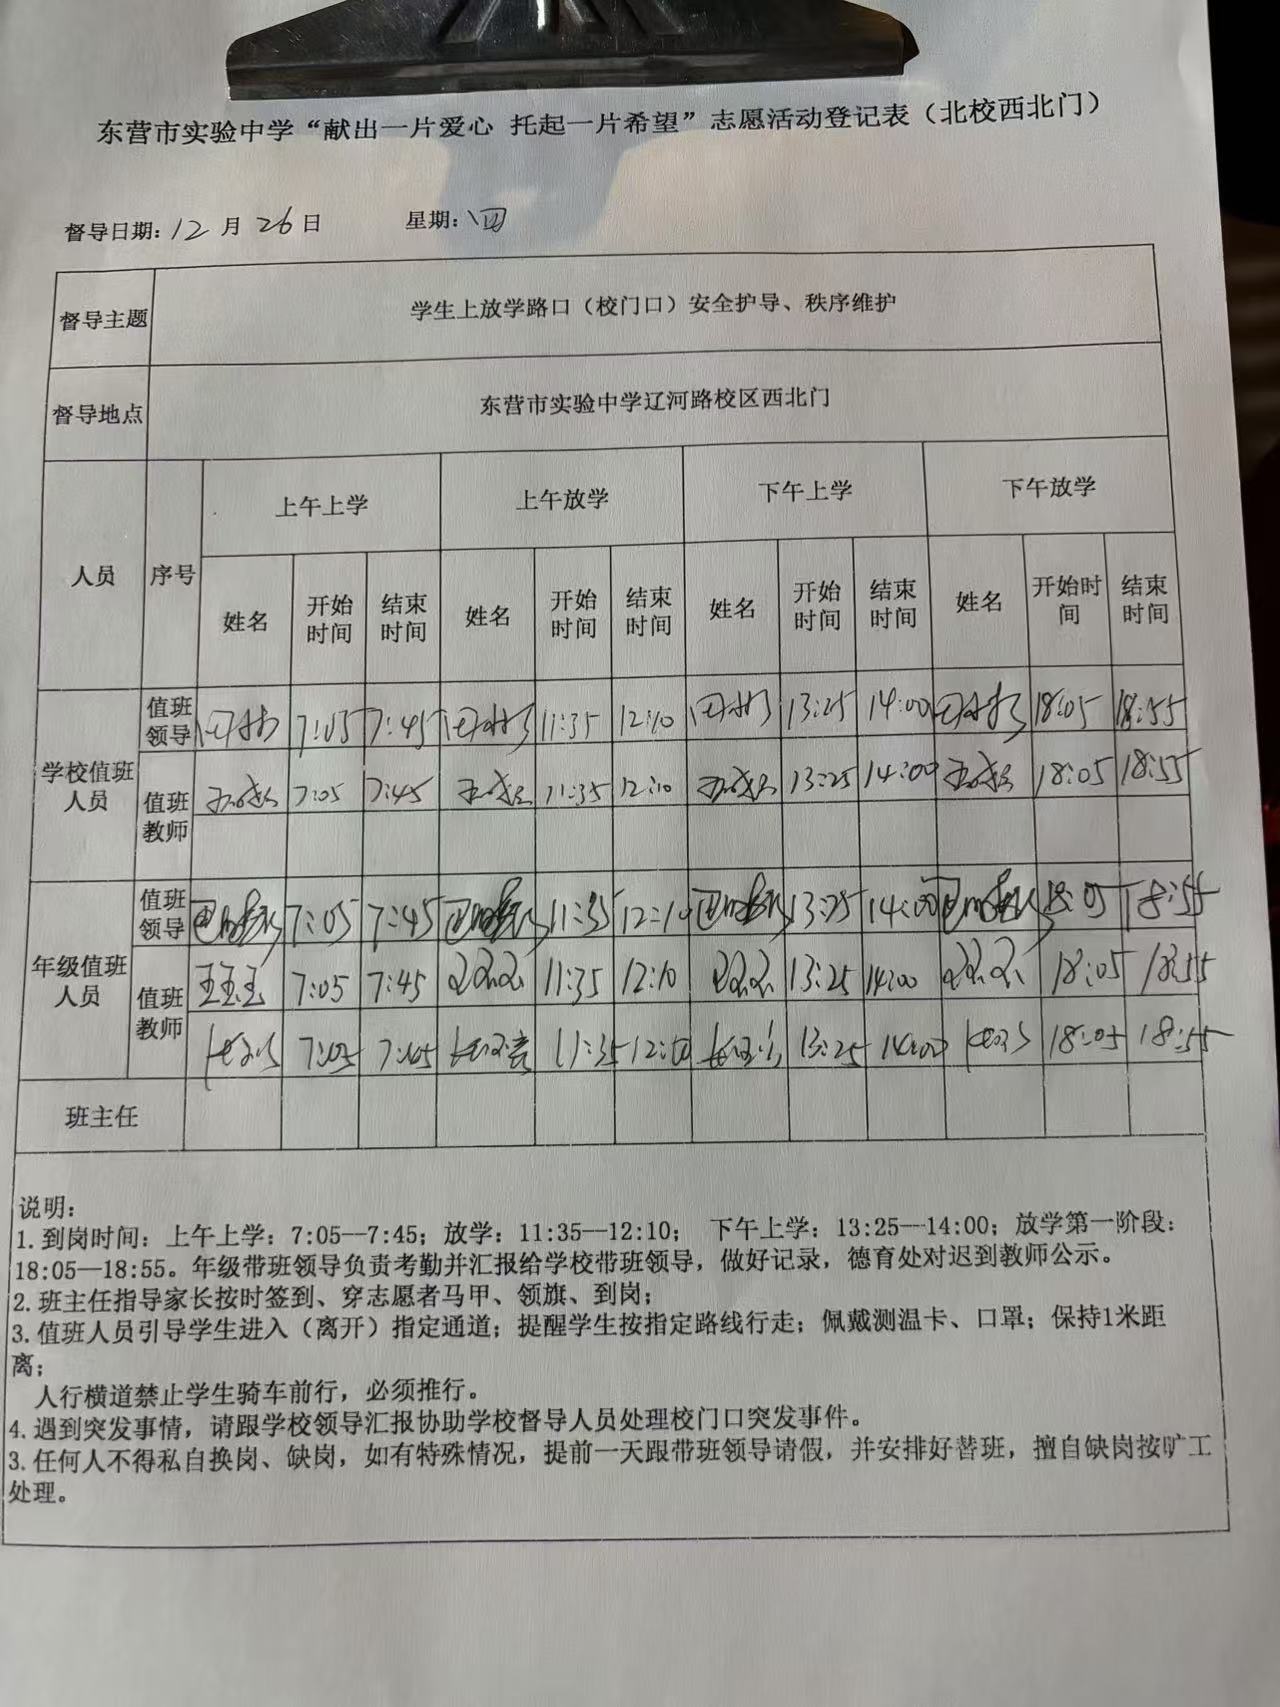 东营市实验中学“献出一片爱心 托起一片希望”志愿活动登记表（北校西北门）
督导日期：12月26日 星期：四
督导主题 学生上放学路口（校门口）安全护导、秩序维护
督导地点 东营市实验中学辽河路校区西北门
人员 序号 上午上学 上午放学 下午上学 下午放学
姓名 开始时间 结束时间 姓名 开始时间 结束时间 姓名 开始时间 结束时间 姓名 开始时间 结束时间
学校值班人员 值班领导 7:05 7:45 11:35 12:10 13:25 14:00 18:05 18:55
值班教师 7:05 7:45 11:35 12:10 13:25 14:00 18:05 18:55
年级值班人员 值班领导 7:05 7:45 11:35 12:10 13:25 14:00 18:05 18:55
值班教师 7:05 7:45 11:35 12:10 13:25 14:00 18:05 18:55
7:05 11:35 12:10 13:25 14:00 18:05 18:55
班主任
说明：
1.到岗时间：上午上学：7:05—7:45；放学：11:35—12:10； 下午上学：13:25—14:00；放学第一阶段：
18:05—18:55。年级带班领导负责考勤并汇报给学校带班领导，做好记录，德育处对迟到教师公示。
2.班主任指导家长按时签到、穿志愿者马甲、领旗、到岗；
3.值班人员引导学生进入（离开）指定通道；提醒学生按指定路线行走；佩戴测温卡、口罩；保持1米距
离；
人行横道禁止学生骑车前行，必须推行。
4.遇到突发事情，请跟学校领导汇报协助学校督导人员处理校门口突发事件。
3.任何人不得私自换岗、缺岗，如有特殊情况，提前一天跟带班领导请假，并安排好替班，擅自缺岗按旷工
处理。